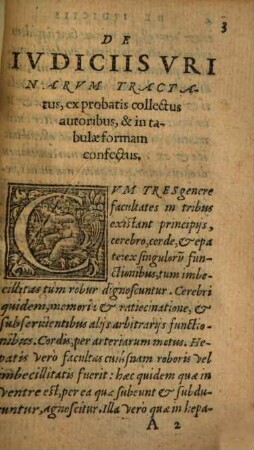 3
DE
IVDICIIS VRI
NARVM TRACTA-
tus, ex probatis collectus
autoribus, & in ta-
bulæ formam
confectus.
CVM TRES genere
facultates in tribus
existant principijs,
cerebro, corde, & epa
te: ex singulorũ fun-
ctionibus, tum imbe-
cillitas tum robur dignoscuntur. Cerebri
quidem, memoriæ & ratiocinatione, &
subseruientibus alijs arbitrarijs functio-
nibus. Cordis, per arteriarum motus. He-
patis vero facultas cuiusnam roboris vel
imbecillitatis fuerit: hæc quidem quæ in
ventre est, per ea quæ subeunt & subdu-
untur, agnoscitur. Illa vero quæ in hepa-
A 2